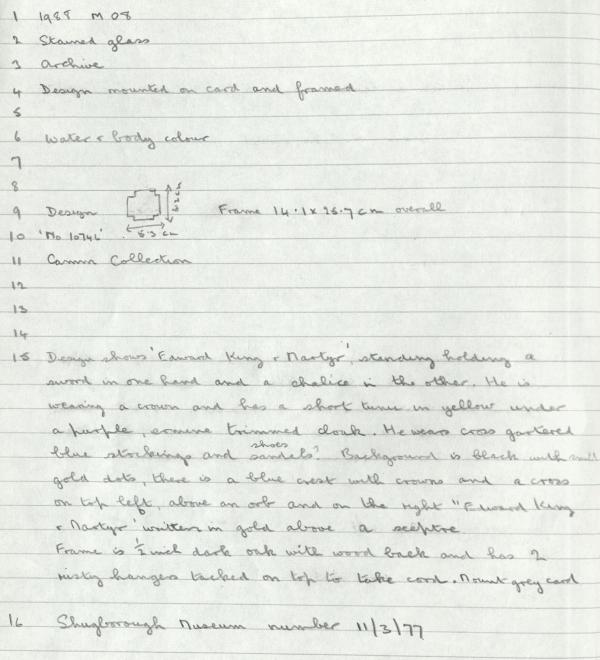 1 1988 M 08
2 Stained glass
3 Archive
4 Design mounted on card and framed
5
6 Water & body colour
7
8
9 Design Frame 14.1 x 26.7 cm overall
10 'No 10742' cm
11 Camm Collection
12
13
14
15 Design shows 'Edward King & Martyr', standing holding a
sword in one hand and a chalice in the other. He is
wearing a crown and has a short tunic in yellow under
a purple, ermine trimmed cloak. He wears cross gartered
shoes
blue stockings and sandels? Background is black with small
gold dots, there is a blue crest with crowns and a cross
on top left, above an orb and on the right "Edward King
& Martyr' written in gold above a sceptre
Frame is ½ inch dark oak with wood back and has 2
rusty hangers tacked on top to take cord. Mount grey card
16 Shugborough Museum number 11/3/77